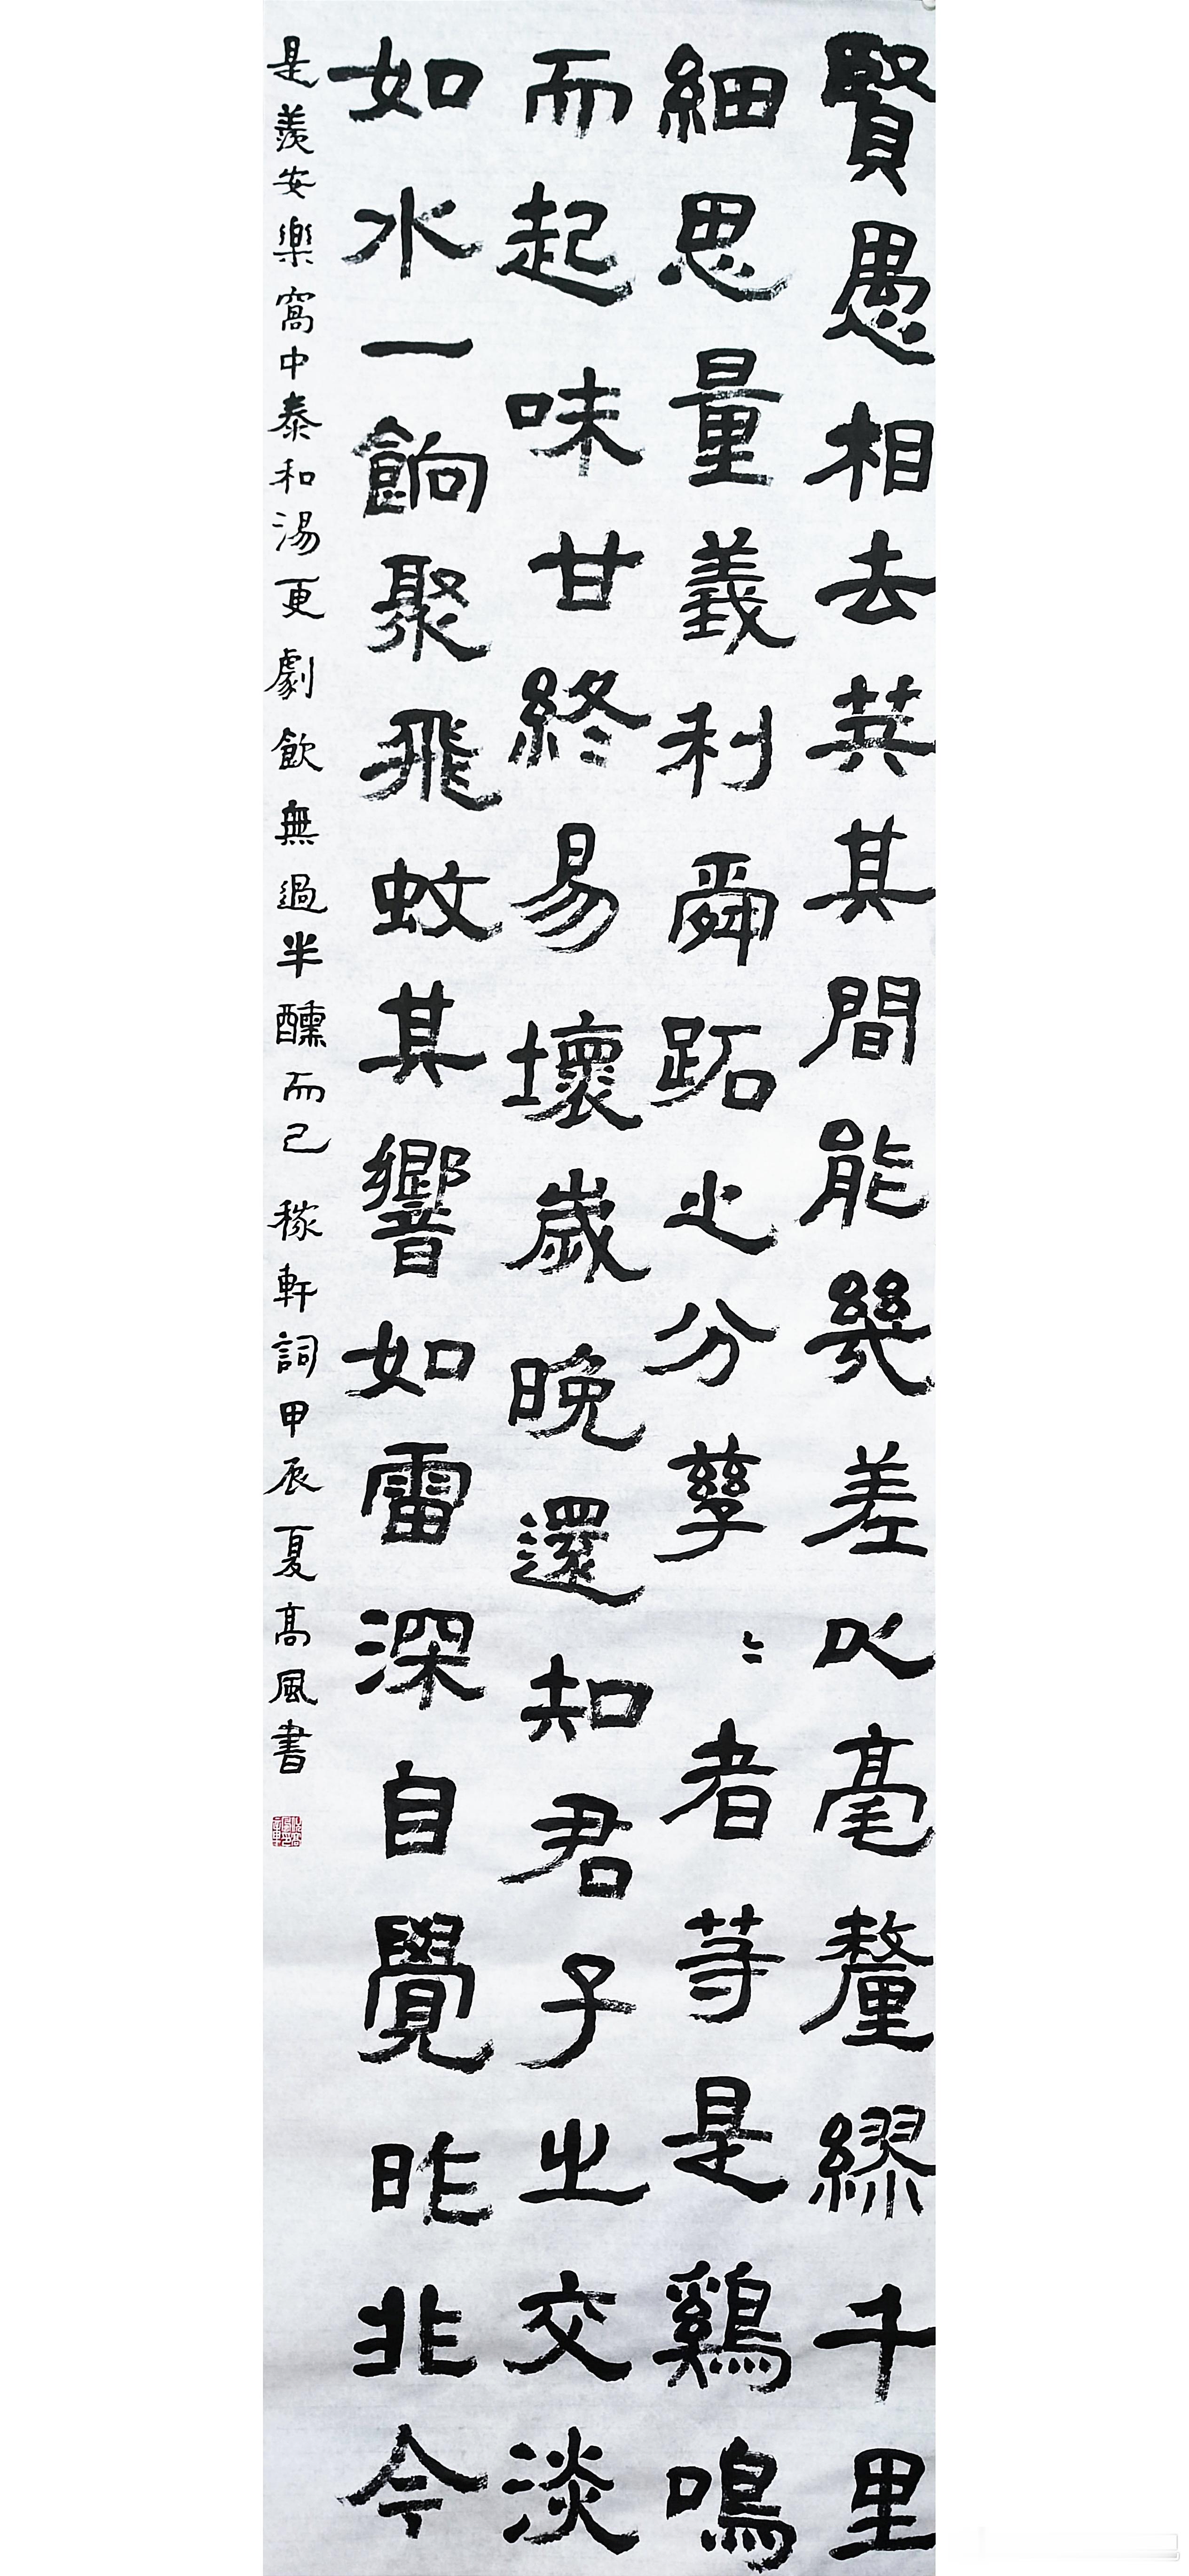 賢愚相去共其間能幾差以毫釐繆千里
細思量義利舜跖之分孳〻者等是鷄鳴
而起味甘終易壞歲晚還知君子之交淡
如水一餉聚飛蚊其響如雷深自覺昨非今
是羨安樂窩中泰和湯更劇飲無過半醺而已 稼軒詞甲辰夏高風書